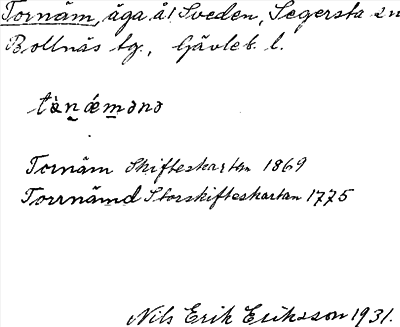 Tornäm, äga å 1 Sveden, Segersta sn
Bollnäs tg., Gävleb. l.
tànǽmənə
Tornäm Skifteskartan 1869
Torrnämd Storskifteskartan 1775
Nils Erik Eriksson 1931.